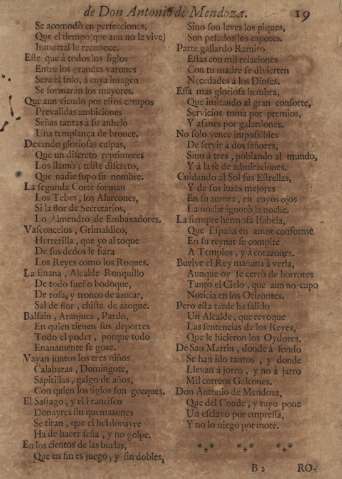 de Don Antonio de Mendoza. 19
Se acomodò en perfecciones,
Que el tiempo (que aun no la vive)
Inmortal le reconoce.
Este que à todos los siglos
Entre los grandes varones
Serà el solo, à cuya imagen
Se formaràn los mayores.
Que aun siendo por estos campos
Prevalidas ambiciones
Señas tantas à su anhelo
Una templança de bronce.
Dexando gloriosas culpas,
Que un discreto
Los llamò; culto discreto,
Que nadie supo su nombre.
La segunda Corte forman
Los Tebes, los Alarcones,
Si la flor de Secretarios,
Lo Almendro de Embaxadores.
Vasconcelos, Grimaldico,
Herrerilla, que yo al toque
De sus dedos le fiara
Los Reyes como los Roques.
La enana, Alcalde Ronquillo
De todo fuero bodoque,
De rosa, y tronco de azucar,
Sal de flor, chiste de azogue.
Balsain, Aranjuez, Pardo,
En quien tienen sus deportes
Todo el poder, porque todo
Enanamente se goze.
Vayan juntos los tres niños
Calabaças, Domingote,
Sapicillas, galgo de años,
Con quien los siglos son gozques.
El Sassago, y el Francisco
Donayres sin quemazones
Se tiran, que el helado ayre
Ha de hazer seña, y no golpe.
En los cientos de las burlas,
Que es sin es juego, y sin dobles,
Sino son leves los piques,
Son pesados los capotes.
Parte gallardo Ramiro
Ellas con mil relaciones
Con tu madre se divierten
Necedades à los Dioses.
Essa mas gloriosa hembra,
Que imitando al gran consorte,
Servicios toma por premios,
Y afanes por galardones.
No solo vence impossibles
De servir à dos señores,
Sino à tres, poblando al mundo,
Y à la de admiraciones.
Cuidando al Sol sus Estrellas,
Y de sus luzes mejores
En su aurora, en cuyos ojos
La noche ignorò la noche.
La siempre hermosa Isabela,
Que España en amor conforme
En su reynar se compite
A Templos, y à coraçones.
Buelve el Rey mañana à verla,
Aunque oy se cerrò de horrores
Tanto el Cielo, que aun no cupo
Noticia en los Orizontes.
Pero esta tarde ha salido
Un Alcalde, que revoque
Las sentencias de los Reyes,
Que le hizieron los Oydores.
De San Martin, donde à fondo
Se han ido tantos, y donde
Llevan à jorro, y no à jarro
Mil correos Galeones.
Don Antonio de Mendoza,
Que del Conde, y cuyo pone
Un esclavo por empressa,
Y no lo niego por mote.
B 2 RO-